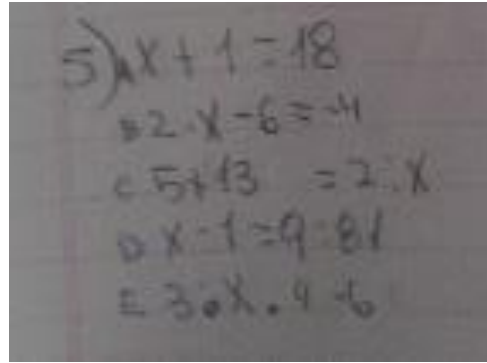 5) A X + 1 = 18
B 2 · X - 6 = -4
C 5 + 13 = 2 · X
D X - 1 = 9 · 81
E 3 · X · 4 - 6